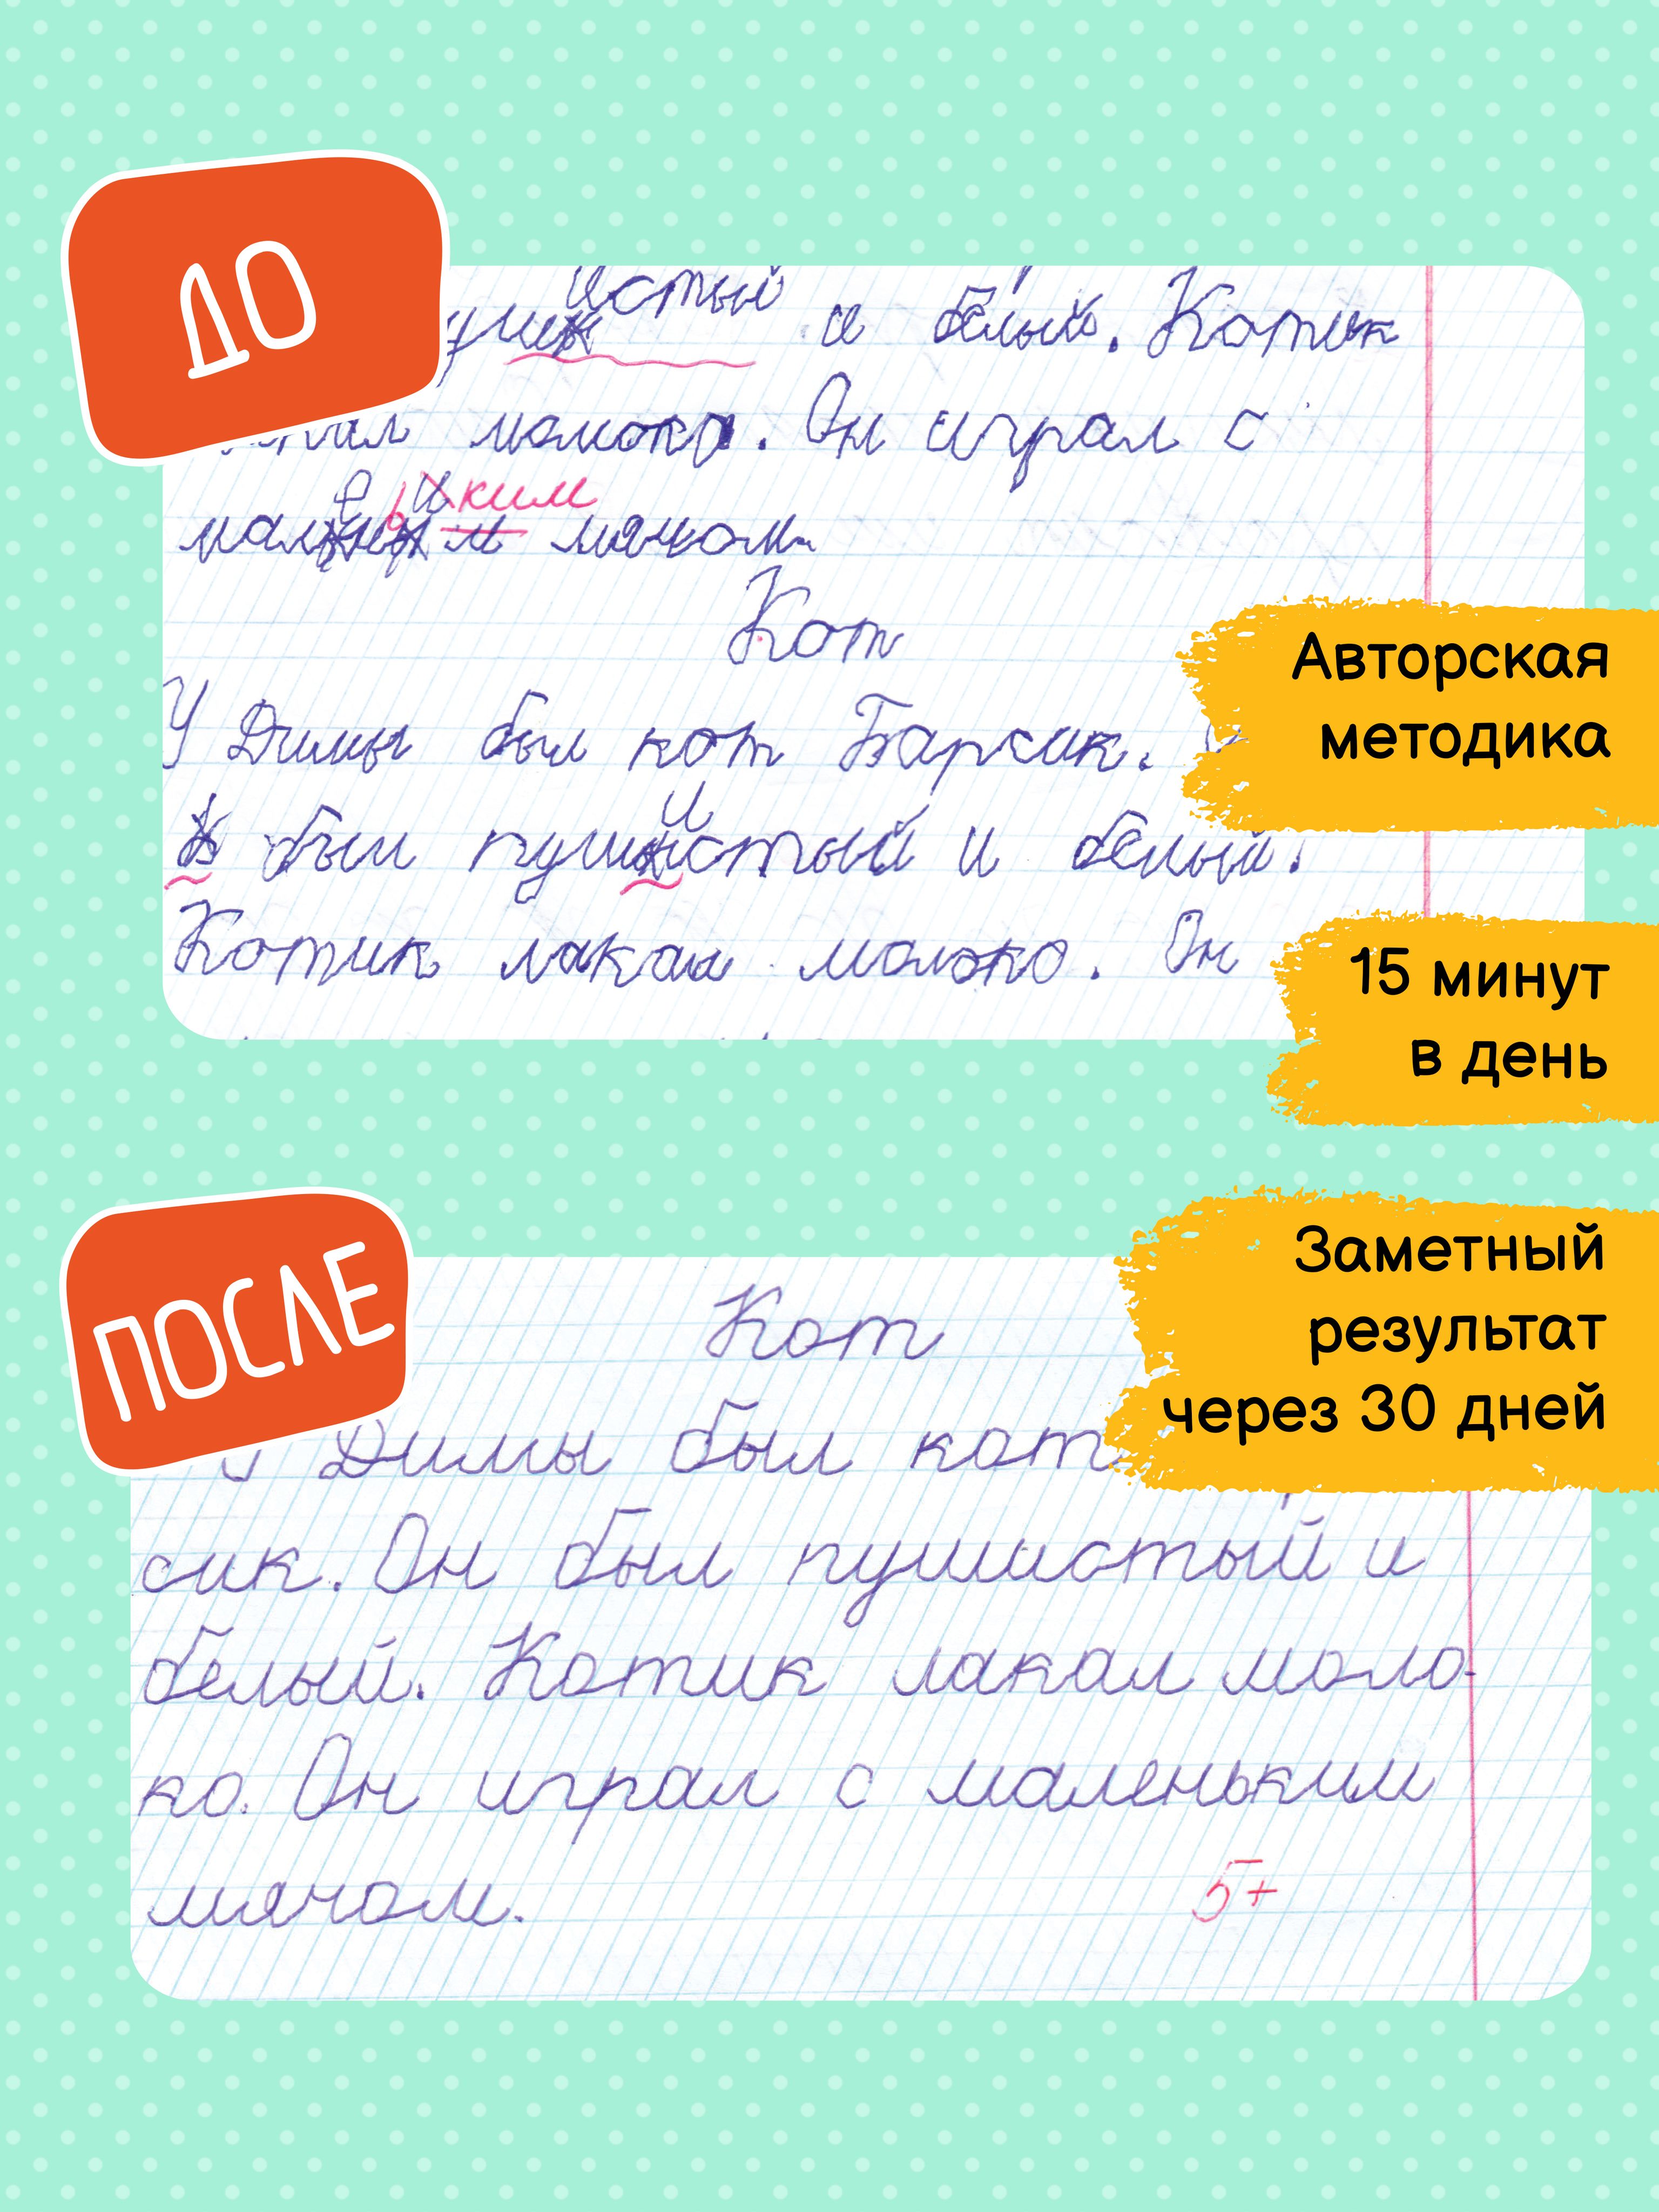 ДО
истый
и белый. Котик
молоко. Он играл с
е и ким
ь
мячом
Кот
У Димы был кот Барсик.
был пушистый и белый.
и
Котик лакал молоко. Он
Авторская
методика
15 минут
в день
ПОСЛЕ
Заметный
результат
через 30 дней
Кот
Димы был кот
сик. Он был пушистый и
белый. Котик лакал моло-
ко. Он играл с маленьким
мячом.
5+